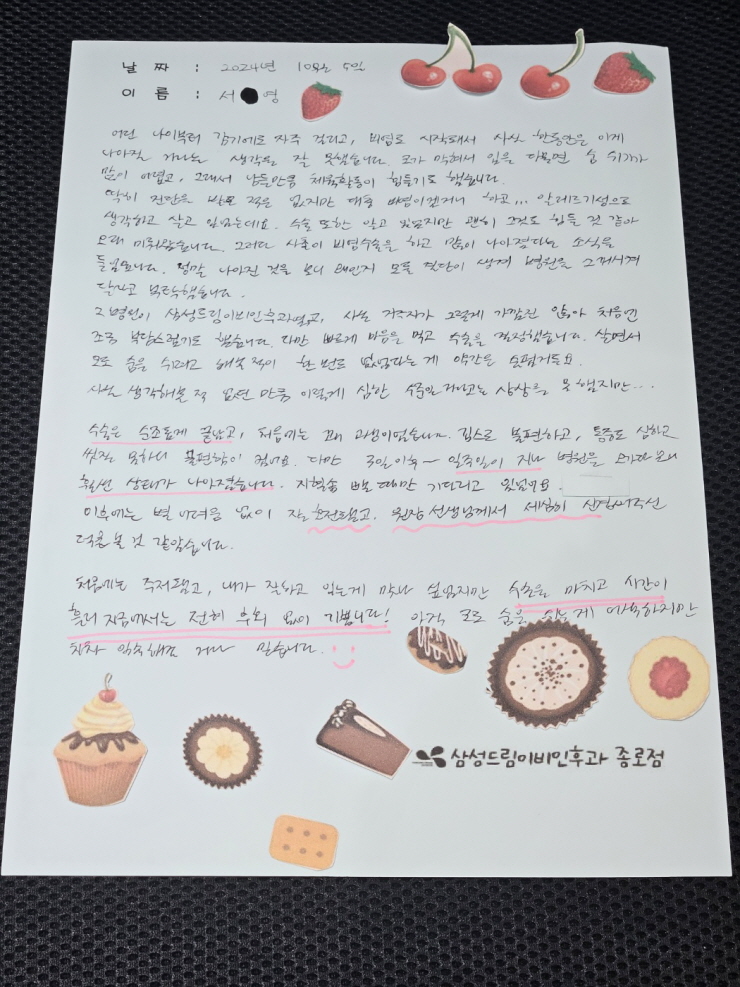 날 짜 : 2024년 10월 5일
이 름 : 서 영
어린 나이부터 감기에도 자주 걸리고, 비염도 시작돼서 사실 한동안은 이게
나아질 거라는 생각을 잘 못했습니다. 코가 막혀서 입을 다물면 숨 쉬기가
많이 어렵고, 그래서 남들만큼 체육활동이 힘들기도 했습니다.
딱히 진단을 받아 적은 없지만 대충 비염이겠거니 하고... 알레르기성으로
생각하고 살고 있었는데요. 수술 또한 알고 있었지만 괜히 그것도 힘들 것 같아
오래 미뤄왔습니다. 그러다 사촌이 비염수술을 하고 많이 나아졌다는 소식을
들었습니다. 정말 나아진 것을 보니 왜인지 모를 결단이 생겨 병원을
알려달라고 했습니다.
그 병원이 삼성드림이비인후과였고, 사실 거주지가 그렇게 가깝진 않아 처음엔
조금 부담스럽기도 했습니다. 다만 빠르게 마음을 먹고 수술을 결정했습니다. 살면서
코로 숨을 쉬려고 해본 적이 한 번도 없었다는 게 약간은 슬펐거든요.
사실 생각해본 적 없던 만큼 이렇게 심한 수준일 거라고는 상상을 못 했지만...
수술은 순조롭게 끝났고, 처음에는 꽤 고생이었습니다. 입으로 불편하고, 통증도 심하고
씻질 못하니 불편함이 컸어요. 다만 3일이후~ 일주일이 지나 병원을 오가다 보니
훨씬 상태가 나아졌습니다. 지혈솜 빼는 때만 기다리고 있었어요.
이후에는 별 어려움 없이 잘 호전됐고, 원장 선생님께서 세심히 신경써주신
덕을 본 것 같습니다.
처음에는 주저됐고, 내가 잘하고 있는게 맞나 싶었지만 수술을 마치고 시간이
흘러 지금에서는 전혀 후회 없이 기쁩니다! 아직 코로 숨을 쉬는 게 어색하지만
차차 익숙해질 거라 믿습니다.
삼성드림이비인후과 종로점